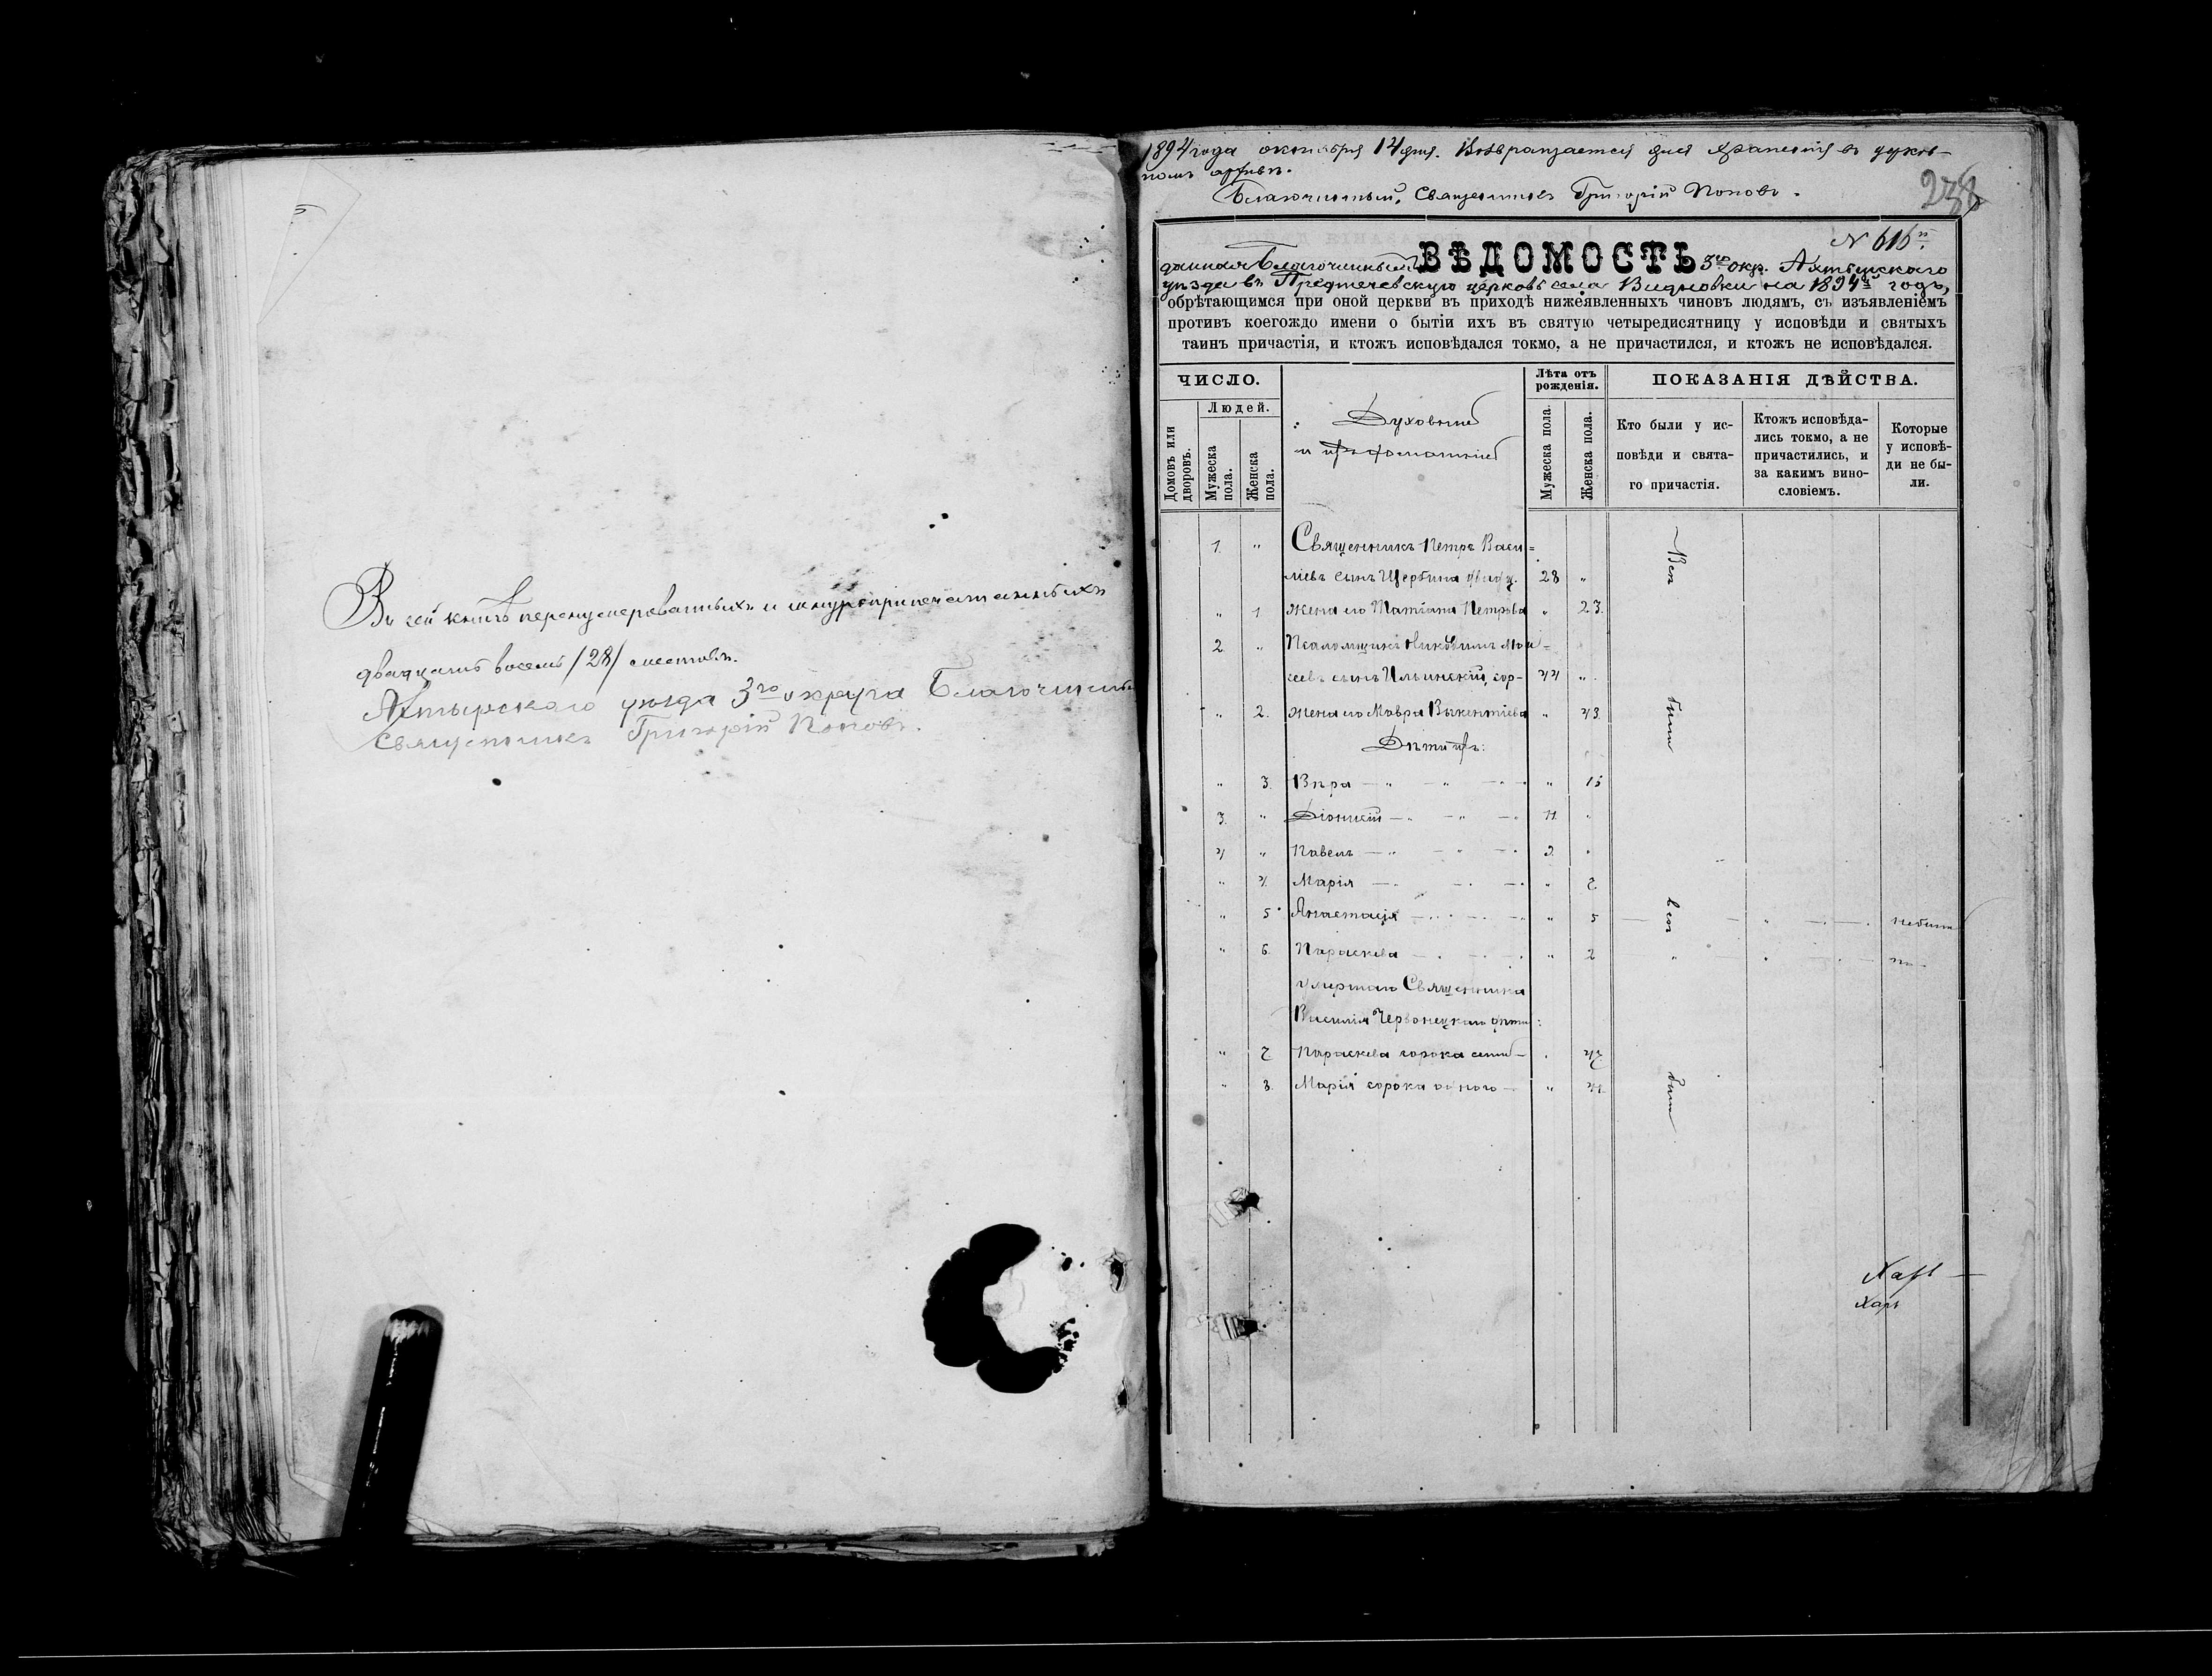 Въ сей книгѣ перенумерованныхъ и шнуроприпечатанныхъ
двадцать восемь /28/ листовъ.
Ахтырскаго уѣзда 3го округа Благочинный
Священникъ Григорій Поповъ.
1894 года октября 14 дня. Возвращается для храненія въ церков-
номъ архивѣ.
Благочинный, Священникъ Григорій Поповъ.
238
№ 616й
ВѢДОМОСТЬ
данная Благочиннымъ 3го окр. Ахтырскаго
уѣзда въ Предтечевскую церковь села Видновки на 1894й годъ,
обрѣтающимся при оной церкви въ приходѣ нижеявленныхъ чиновъ людямъ, съ изъявленіемъ
противъ коегождо имени о бытіи ихъ въ святую четыредисятницу у исповѣди и святыхъ
таинъ причастія, и ктожъ исповѣдался токмо, а не причастился, и ктожъ не исповѣдался.
ЧИСЛО.
Людей.
Домовъ или дворовъ.
Мужеска пола.
Женска пола.
Духовные
и их домашніе
Лѣта отъ
рожденія.
Мужеска пола.
Женска пола.
ПОКАЗАНІЯ ДѢЙСТВА.
Кто были у ис-
повѣди и свята-
го причастія.
Ктожъ исповѣда-
лись токмо, а не
причастились, и
за какимъ вино-
словіемъ.
Которые
у исповѣ-
ди не бы-
ли.
1. " Священникъ Петръ Васи=
ліевъ сынъ Щербина 28 "
" 1 Жена его Татіана Петрова " 23.
2. " Псаломщикъ Мои=
сеевъ сынъ Ильинскій, 44 "
" 2. Жена его Мавра Викентіева " 43.
Дѣти ихъ:
" 3. Вѣра " 15
3. " Діонисій 11 "
4 " Павелъ 9. "
" 4. Марія " 7
" 5 Анастасія " 5 небыли
" 6. Параскева " 2
умершаго Священника
Василія Червонецкаго дѣти:
" 7 Параскева сорока семи " 47
" 8. Марія сорока одного " 41.
Всѣ
были
всѣ
были
Харь
Харь